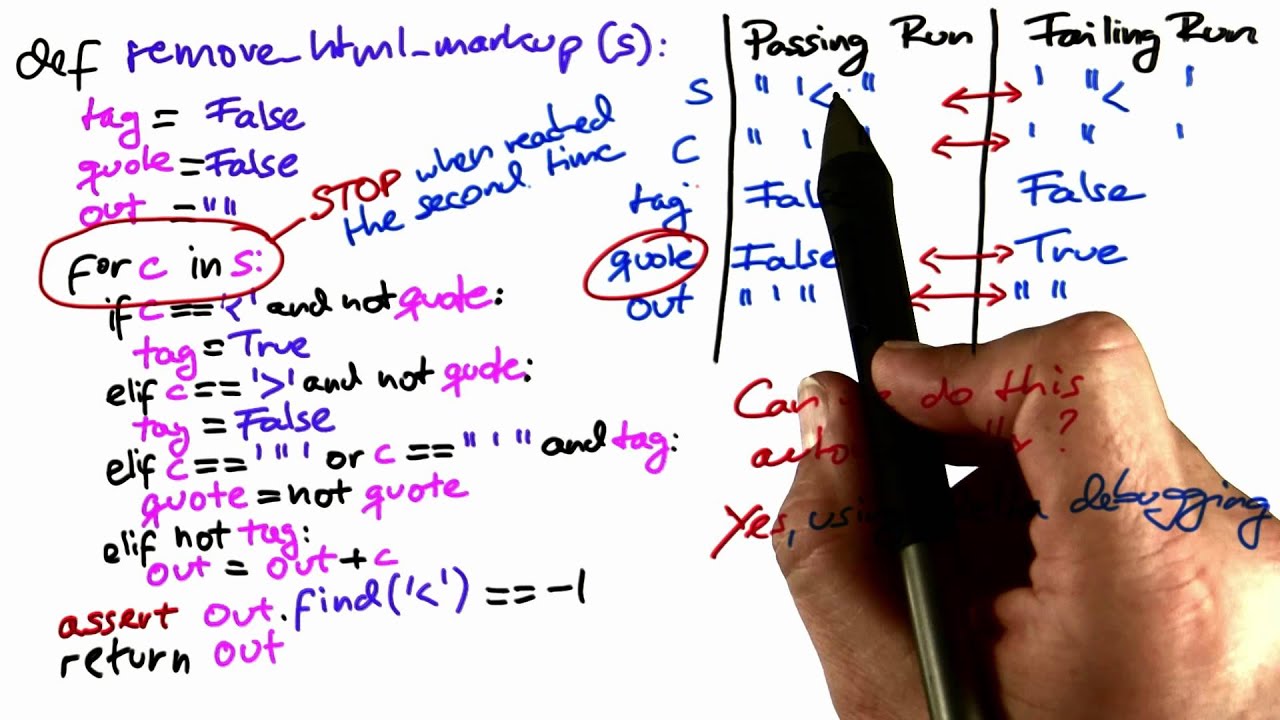 def remove_html_markup (s):
tag = False
quote = False
out = ""
for c in s:
if c == '<' and not quote:
tag = True
elif c == '>' and not quote:
tag = False
elif c == '"' or c == "'" and tag:
quote = not quote
elif not tag:
out = out + c
assert out.find('<') == -1
return out
STOP when reached
the second time
Passing Run Failing Run
s "'<" '"<'
c "'" '"'
tag False
quote False True
out "'" ""
do this
?
Yes, debugging